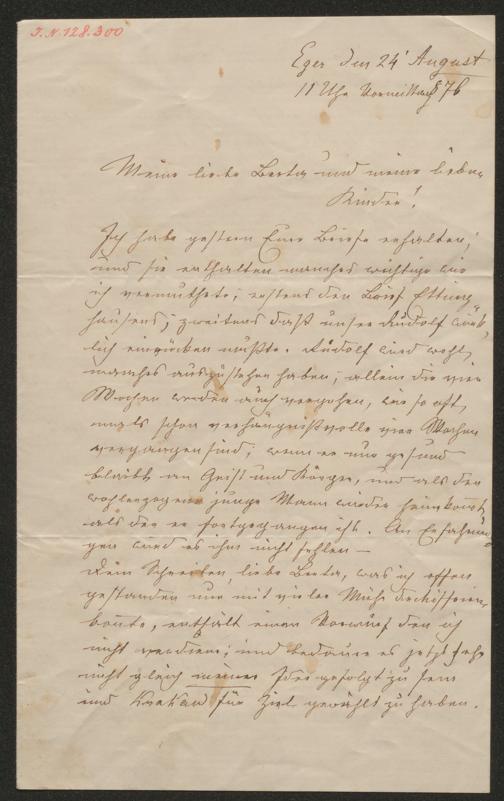 I.N. 128.300
Eger den 24' August
11 Uhr Vormittag 876
Meine liebe Berta und meine lieben
Kinder!
Ich habe gestern Eure Briefe erhalten,
und sie enthalten manches wichtige wie
ich vermuthete; erstens den Brief Ettings-
hausens; zweitens daß unser Rudolf wirk-
lich einrücken mußte. Rudolf wird wohl
manches auszustehen haben; allein die vier
Wochen werden auch vergehen, wie so oft-
mals schon verhängnißvolle vier Wochen
vergangen sind; wenn er nur gesund
bleibt an Geist und Körper, und als der
wohlerzogene junge Mann wieder heimkommt
als der er fortgegangen ist. An Erfahrun-
gen wird es ihm nicht fehlen —
Dein Schreiben, liebe Berta, was ich offen
gestanden nur mit vieler Mühe dechiffriren
konnte, enthält einen Vorwurf den ich
nicht verdiene; und bedaure es jetzt sehr
nicht gleich meiner Idee gefolgt zu sein
und Krakau für Ziel gewählt zu haben.